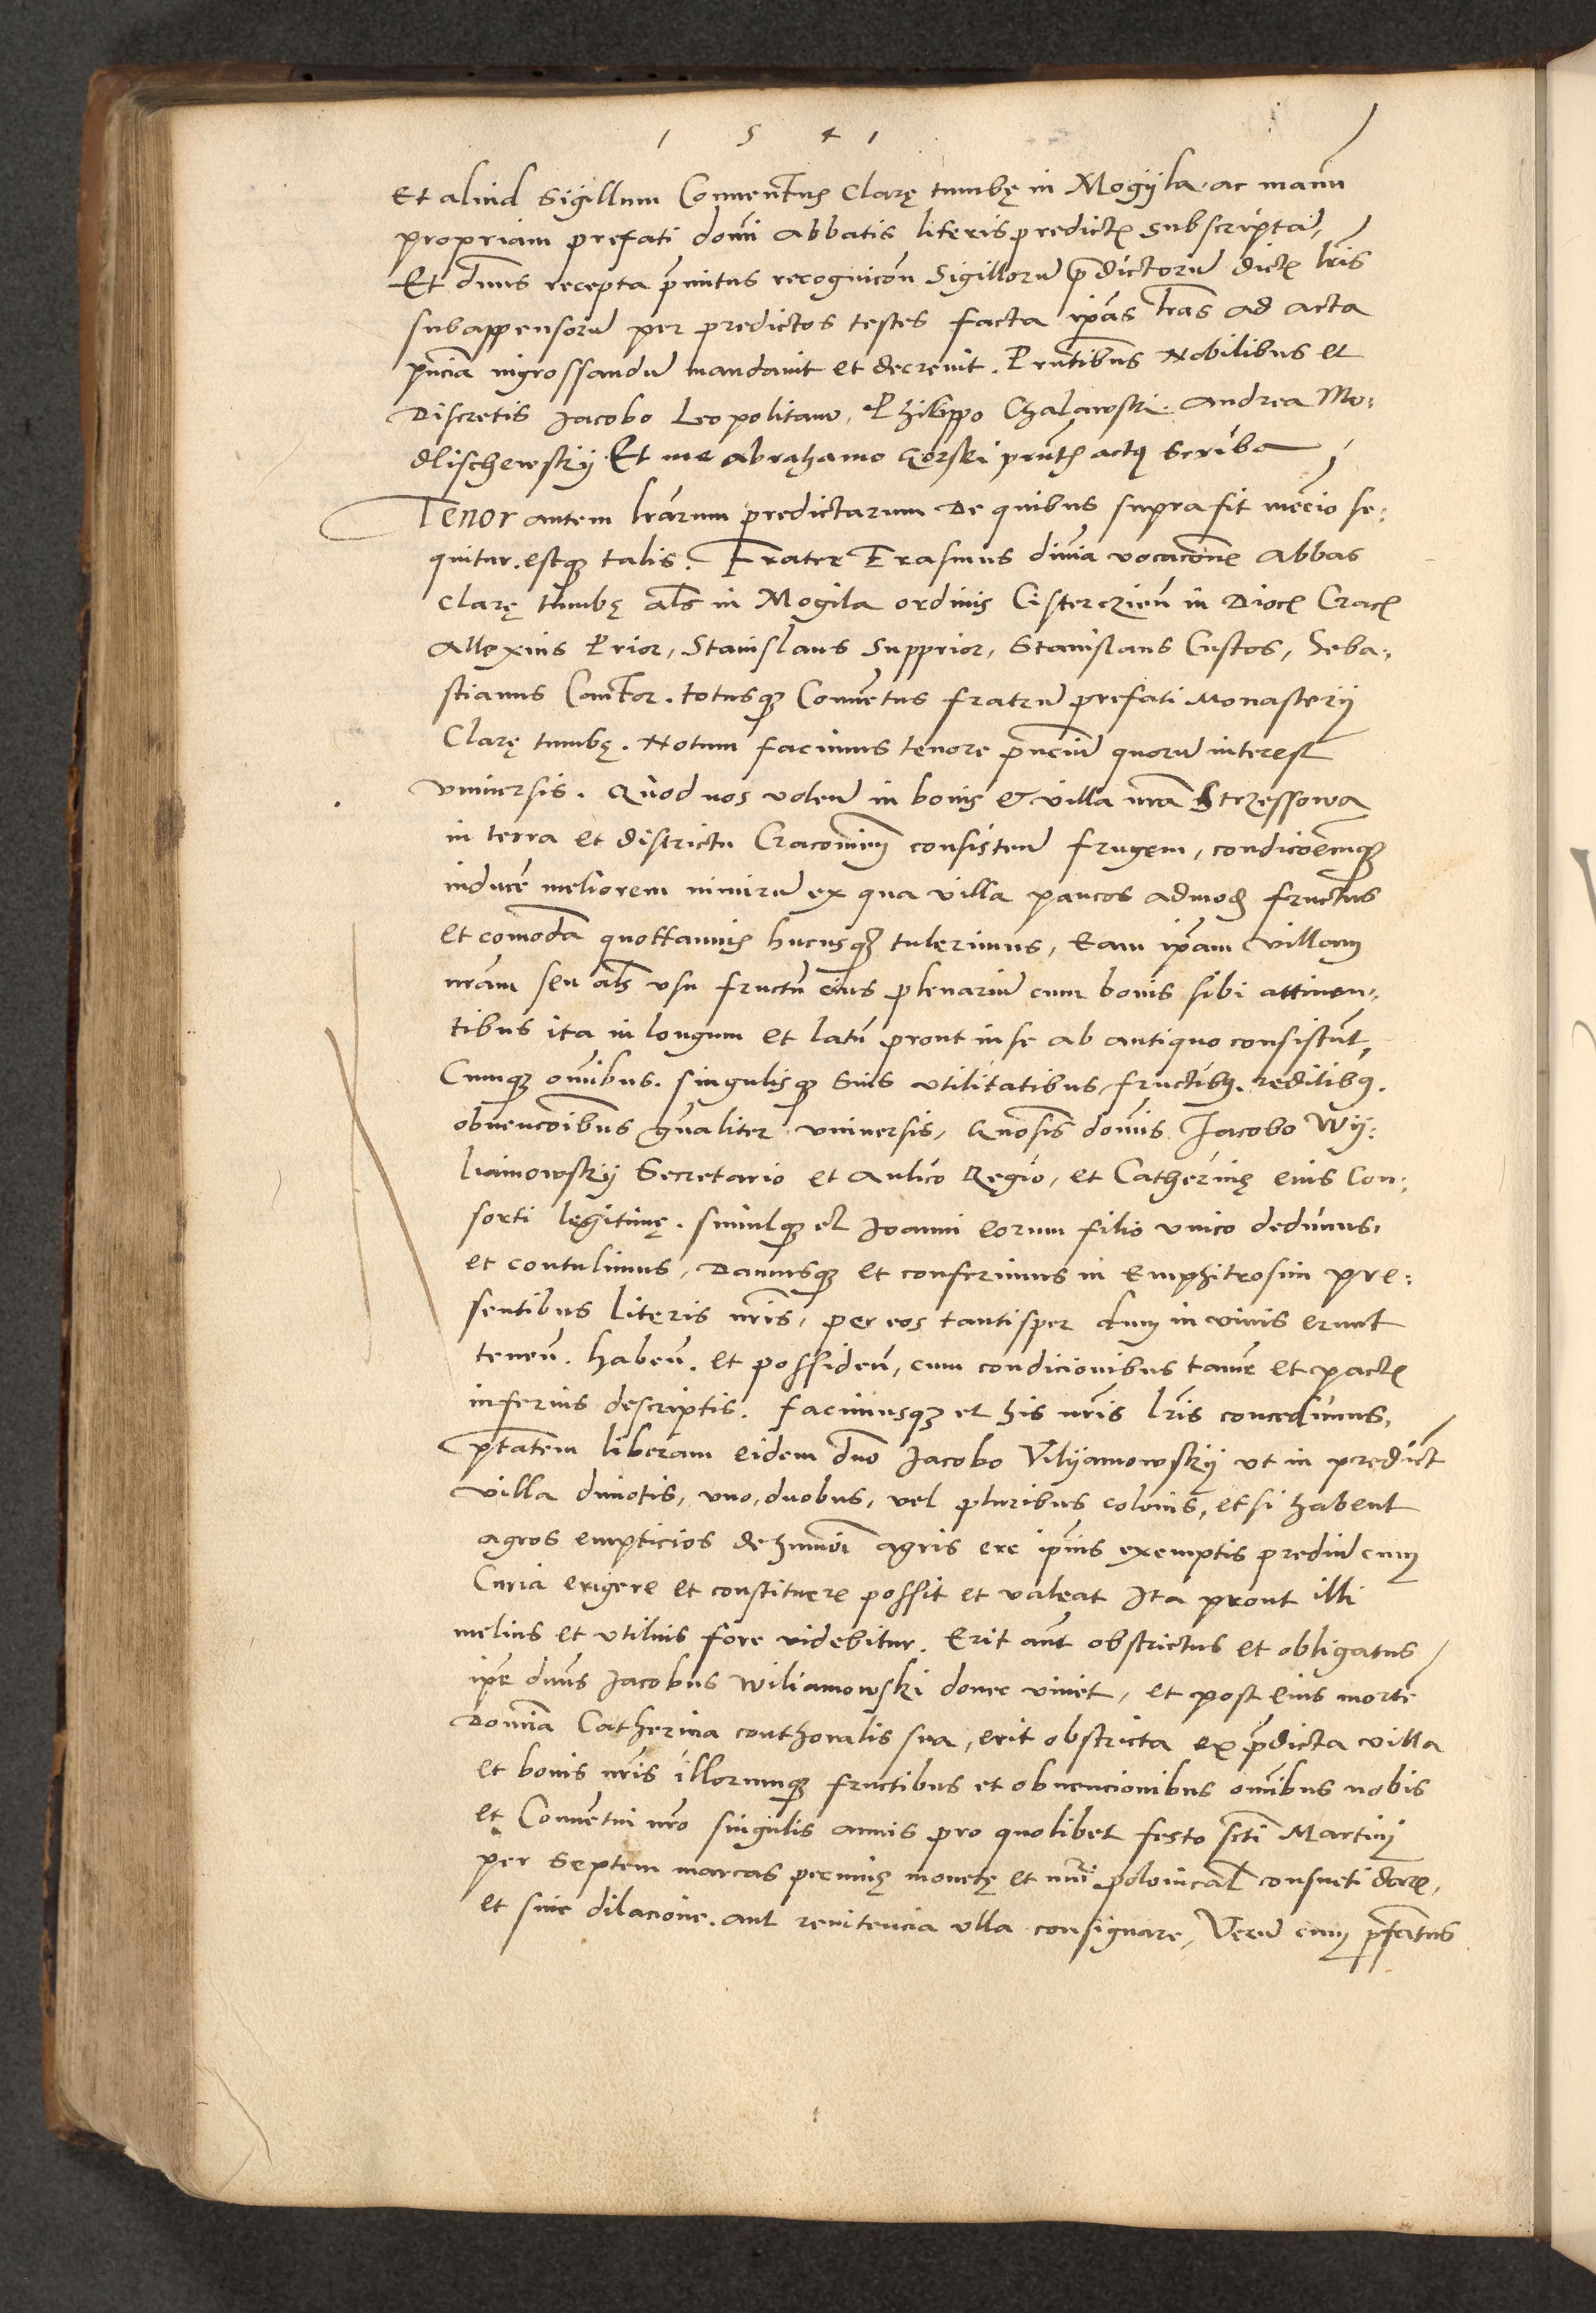 1541
Et aliud Sigillum Conuentus Clarę tumbę in Mogijla. ac manu
propriam prefati domi Abbatis literis predictꝭ subscriptā,
Et dnus recepta p̄mitus recognicōn Sigillorū p̄dictorū dictꝭ lr̄is
subappensorū per predictos testes facta ip̄as lr̄as ad acta
pn̄cia ingrossandū mandauit et decreuit. Prn̄tibus Nobilibus et
Discretis Jacobo Leopolitano, Philippo Chalawski. Andrea Mo:
dlischewskij Et me Abrahamo Gorski prn̄tꝭ actꝰ Scriba
Tenor autem lr̄arum predictarum de quibus supra fit mēcio se:
quitur. estqꝫ talis. Frater Erasmus diuīa vocacōne Abbas
clarę tumbę al̄s in Mogila ordinis Cisterczieñ in Diocꝭ Cracꝭ
Allexius Prior, Stanislaus Supprior, Stanislaus Custos, Seba:
stianus Cantor. totusqꝫ Conuētus fratrū prefati Monasterij
Clarę tumbę. Notum facimus tenore pn̄ciū quorū interest
vniuersis. Quod nos volen̄ in bonis & villa nr̄a Strzessowa
in terra et districtu Cracouien̄ consisteñ frugem, condicōemqꝫ
inducē meliorem nimirū ex qua villa paucos admodꝫ fructus
et comoda quottannis hucusqꝫ tulerimus, eam ip̄am villam
nr̄am seu al̄s vsu fructū eius plenariū cum bonis sibi attinen:
tibus ita in longum et latū prout in se ab antiquo consistūt,
Cumqꝫ om̄ibus. singulisqꝫ suis vtilitatibus, fructibꝰ. reditibꝰ.
obuencōibus gn̄aliter vniuersis, Gn̄osis domīs Jacobo Wij:
liamowskij Secretario et Aulico Regio, et Catherinę eius Con:
sorti legitimę. simulqꝫ et Joanni eorum filio vnico dedimus,
et contulimus, Damusqꝫ et conferimus in emphiteosim pre:
sentibus literis nr̄is, per eos tantisper dum in viuis erunt
teneñ. habeñ. et possideñ, cum condicionibus tamē et pactꝭ
inferius descriptis. facimusqꝫ et his nr̄is lr̄is concedimus,
ptātem liberam eidem dn̄o Jacobo Vilijamowskij vt in predict
villa dimotis, vno, duobus, vel pluribus colonis, etsi habent
agros empticios dehmōi agris ere ip̄ius exemptis prediū cum
Curia erigere et constituere possit et valeat Ita prout illi
melius et vtilius fore videbitur. Erit aūt obstrictus et obligatus
ip̄e dn̄us Jacobus Wiliamowski donec viuet, et post eius mortē
Domīa Catherina conthoralis sua, erit obstricta ex p̄dicta villa
et bonis nr̄is illorumqꝫ fructibus et obuencionibus om̄ibus nobis
et Conuētui nr̄o singulis annis pro quolibet festo scti Martini
per Septem marcas pecunię monetę et nūi polonical consueti dare,
et sine dilacione. aut renitencia vlla consignare, Verū cum p̄fatus